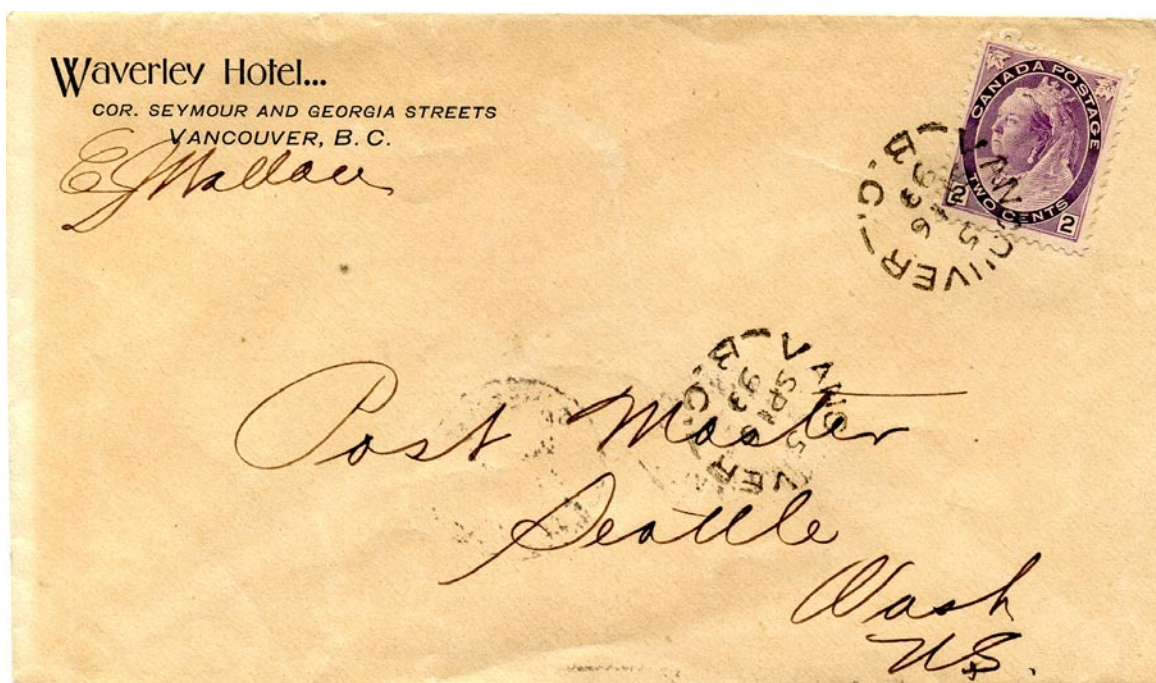 Waverley Hotel...
COR. SEYMOUR AND GEORGIA STREETS
VANCOUVER, B.C.
E J Wallace
CANADA POSTAGE
TWO CENTS
2 2
VANCOUVER
B.C.
VANCOUVER
B.C.
Post Master
Seattle
Wash
U.S.